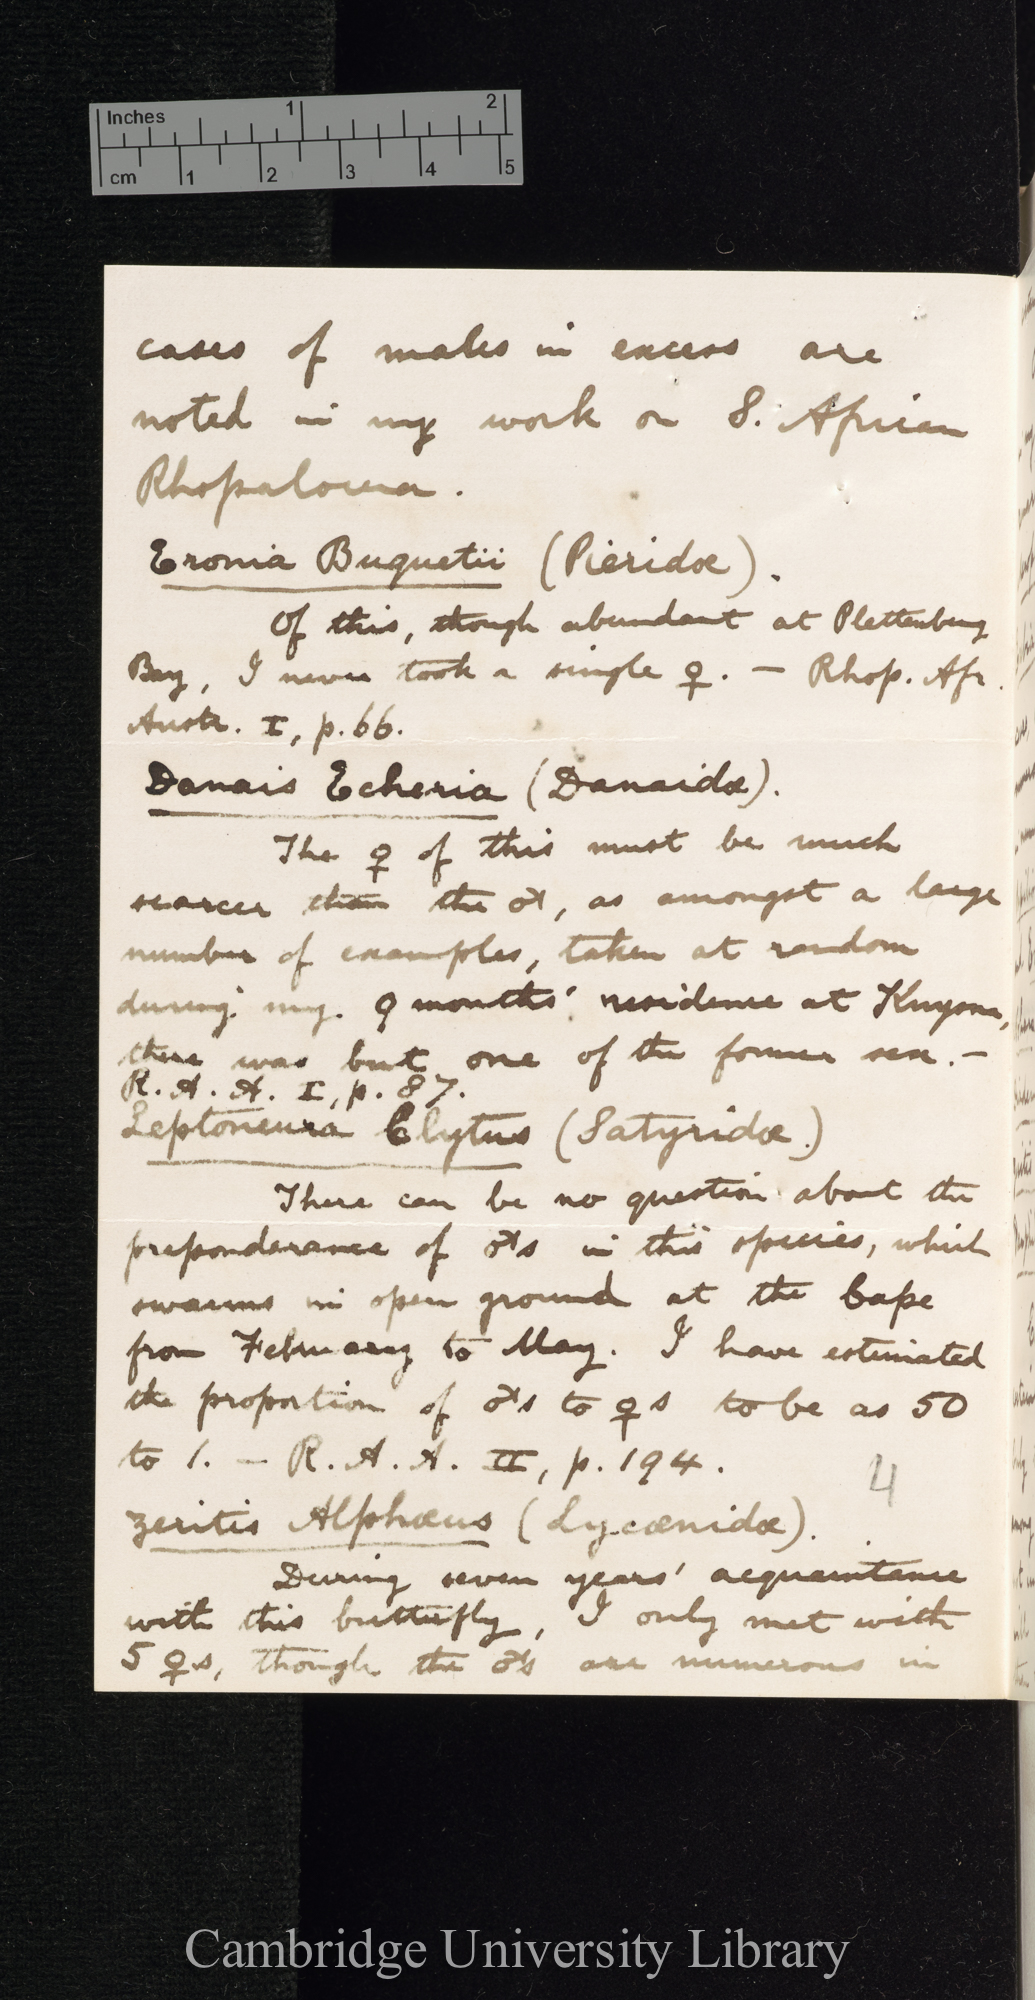 Inches 1 2
cm 1 2 3 4 5
cases of males in excess are
noted in my work on S. African
Rhopalocera.
Eronia Buquetii (Pieridæ).
Of this, though abundant at Plettenberg
Bay, I never took a single ♀. — Rhop. Afr.
Austr. I, p. 66.
Danais Echeria (Danaidæ).
The ♀ of this must be much
scarcer than the ♂, as amongst a large
number of examples, taken at random
during my 9 months' residence at Knysna,
there was but one of the former sex. —
R. A. A. I, p. 87.
Leptoneura Clytus (Satyridæ.)
There can be no question about the
preponderance of ♂s in this species, which
swarms in open ground at the Cape
from February to May. I have estimated
the proportion of ♂s to ♀s to be as 50
to 1. — R. A. A. II, p. 194.
4
Zeritis Alphæus (Lycænidæ).
During seven years' acquaintance
with this butterfly, I only met with
5 ♀s, though the ♂s are numerous in
Cambridge University Library